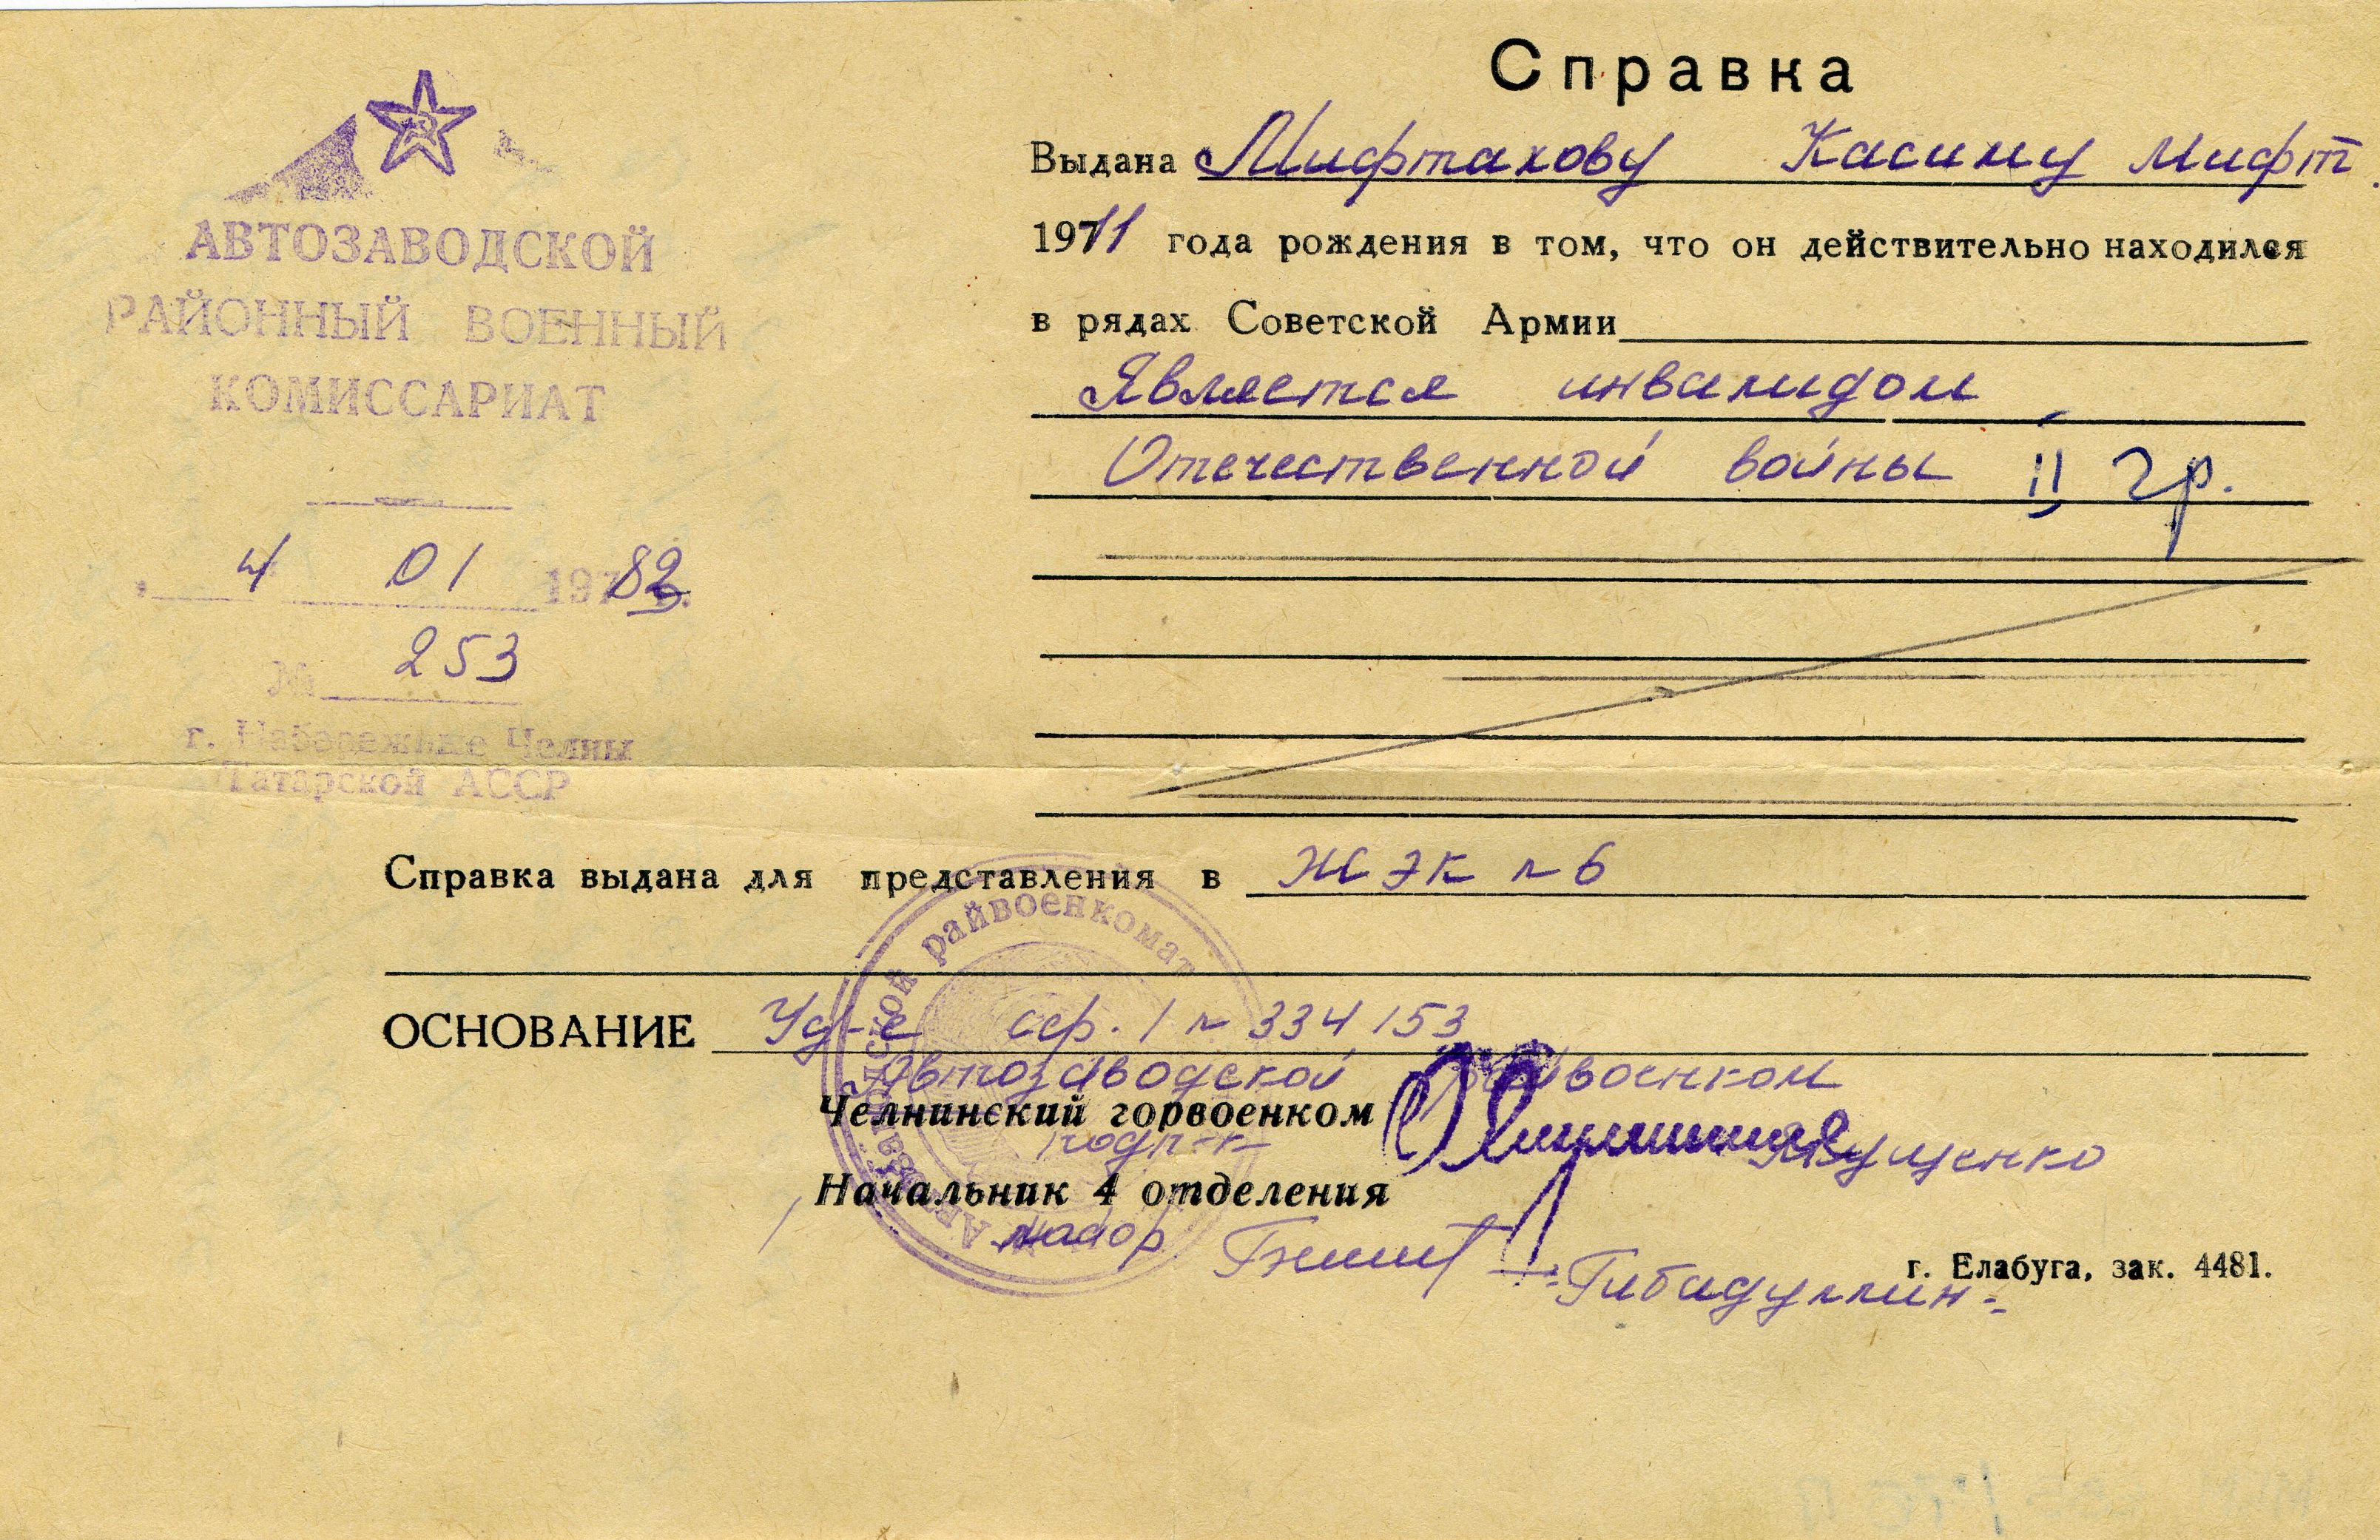 АВТОЗАВОДСКОЙ
РАЙОННЫЙ ВОЕННЫЙ
КОМИССАРИАТ
4 01 1982
№ 253
г. Набережные Челны
Татарской АССР
Справка
Выдана Мифтахову Касиму Мифт.
1911 года рождения в том, что он действительно находился
в рядах Советской Армии
Является инвалидом
Отечественной войны II гр.
Справка выдана для представления в ЖЭК № 6
ОСНОВАНИЕ Уд-е сер. 1 № 334153
Автозаводской райвоенком
Челнинский горвоенком
подп-к Ярущенко
Начальник 4 отделения
майор Гибадуллин
г. Елабуга, зак. 4481.
райвоенкомат